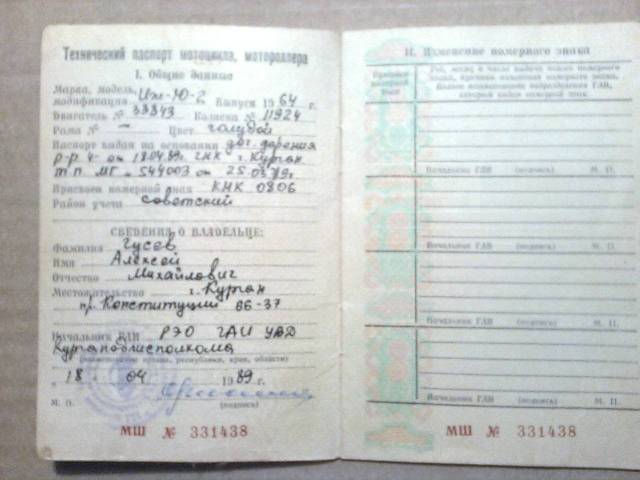 Технический паспорт мотоцикла, мотороллера
I. Общие данные
Марка, модель, Иж-Ю-2
модификация Выпуск 1964 г.
Двигатель № 33343 Коляска № 11924
Рама № — Цвет голубой
Паспорт выдан на основании дог. дарения
р-р 4- от 18.04.89г. ГНК г. Курган
т.п. МГ - 544003 от 25.03.89г.
Присвоен номерной знак КНК 0806
Район учета Советский
СВЕДЕНИЯ О ВЛАДЕЛЬЦЕ:
Фамилия Гусев
Имя Алексей
Отчество Михайлович
Местожительство г. Курган
пр. Конституции 66-37
Начальник ГАИ РЭО ГАИ УВД
Курганоблисполкома
(наименование органа, республики, края, области)
" 18 " 04 1989 г.
М. П. (подпись)
МШ № 331438
II. Изменение номерного знака
Прежний номерной знак
Год, месяц и число выдачи нового номерного
знака, причина изменения номерного знака,
полное наименование подразделения ГАИ,
которой выдан номерной знак
Начальник ГАИ (подпись) М. П.
Начальник ГАИ (подпись) М. П.
Начальник ГАИ (подпись) М. П.
Начальник ГАИ (подпись) М. П.
МШ № 331438